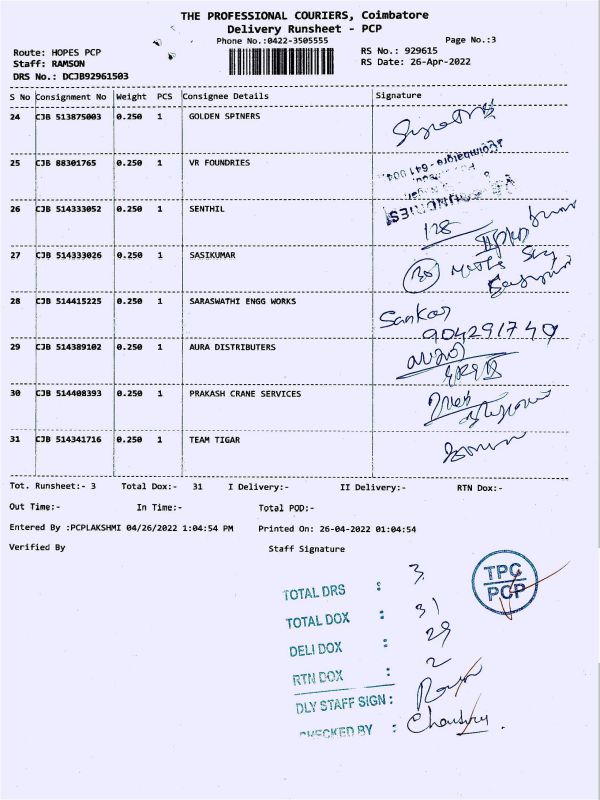 THE PROFESSIONAL COURIERS, Coimbatore
Delivery Runsheet - PCP
Phone No.:0422-3505555
Page No.:3
Route: HOPES PCP
RS No.: 929615
Staff: RAMSON
RS Date: 26-Apr-2022
DRS No.: DCJB92961503
S No Consignment No Weight PCS Consignee Details Signature
24 CJB 513875003 0.250 1 GOLDEN SPINERS
25 CJB 88301765 0.250 1 VR FOUNDRIES
Coimbatore - 641 004
26 CJB 514333052 0.250 1 SENTHIL
128
27 CJB 514333026 0.250 1 SASIKUMAR
28 CJB 514415225 0.250 1 SARASWATHI ENGG WORKS
Sankar
9042917749
29 CJB 514389102 0.250 1 AURA DISTRIBUTERS
30 CJB 514408393 0.250 1 PRAKASH CRANE SERVICES
31 CJB 514341716 0.250 1 TEAM TIGAR
Tot. Runsheet:- 3 Total Dox:- 31 I Delivery:- II Delivery:- RTN Dox:-
Out Time:- In Time:- Total POD:-
Entered By :PCPLAKSHMI 04/26/2022 1:04:54 PM Printed On: 26-04-2022 01:04:54
Verified By Staff Signature
TPC
PCP
TOTAL DRS : 3
TOTAL DOX : 31
DELI DOX : 29
RTN DOX : 2
DLY STAFF SIGN :
CHECKED BY :